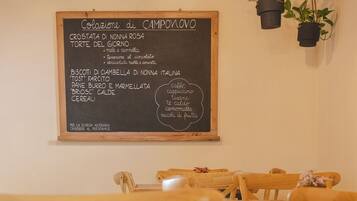 Colazione di CAMPOVIOVO
CROSTATA DI NONNA ROSA
TORTE DEL GIORNO
• mele e cannella
BISCOTI DI CIAMBELLA DI NONNA ITALINA
"TOST" FARCITO
PANE BURRO E MARMELLATA
"BRIOSC" CALDE
CEREALI
caffè
cappuccino
tisane
te caldo
camomilla
succhi di frutta